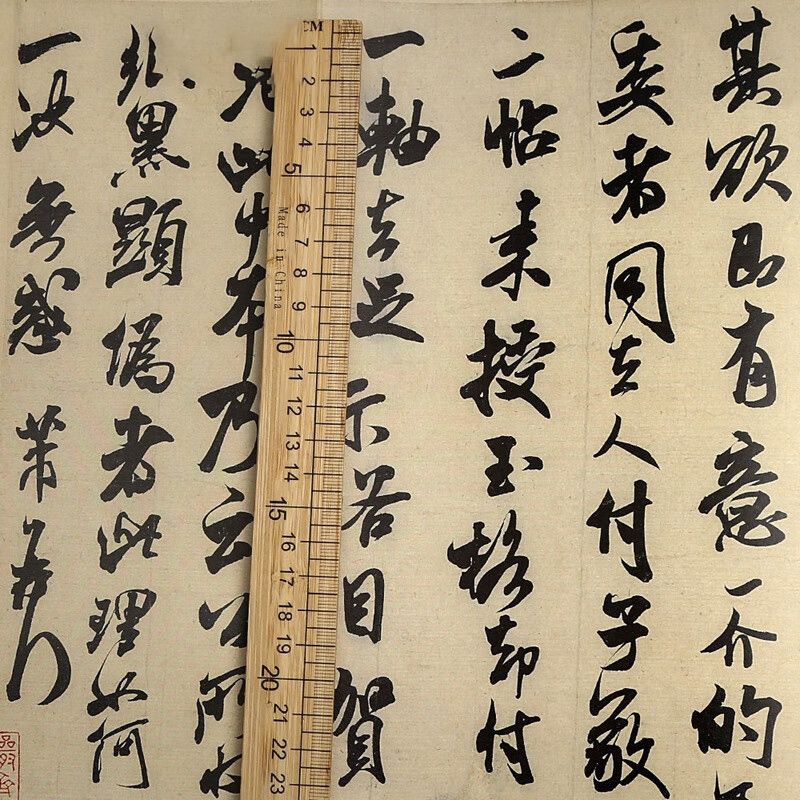 某欲即有意一介的
委者同去人付子敬
二帖来授玉格却付
一軸去足示若目賀
此中本乃云公所
黑顯偽者此理如何
一決無惑芾再拜
CM
1
2
3
4
5
6
7
8
9
10
11
12
13
14
15
16
17
18
19
20
21
22
23
Made in China